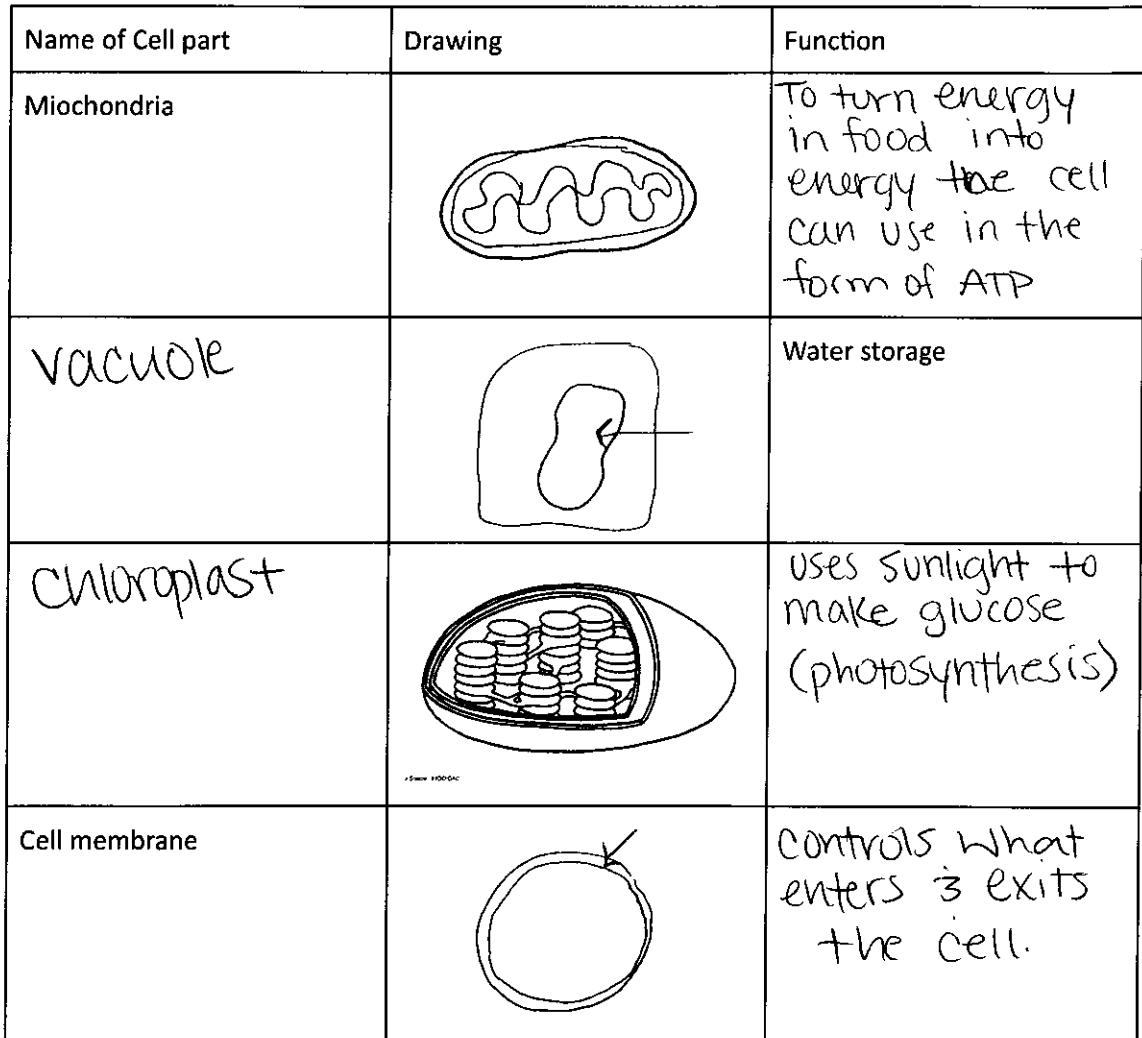 Name of Cell part
Drawing
Function
Miochondria
To turn energy
in food into
energy the cell
can use in the
form of ATP
vacuole
Water storage
chloroplast
uses sunlight to
make glucose
(photosynthesis)
Cell membrane
controls what
enters & exits
the cell.